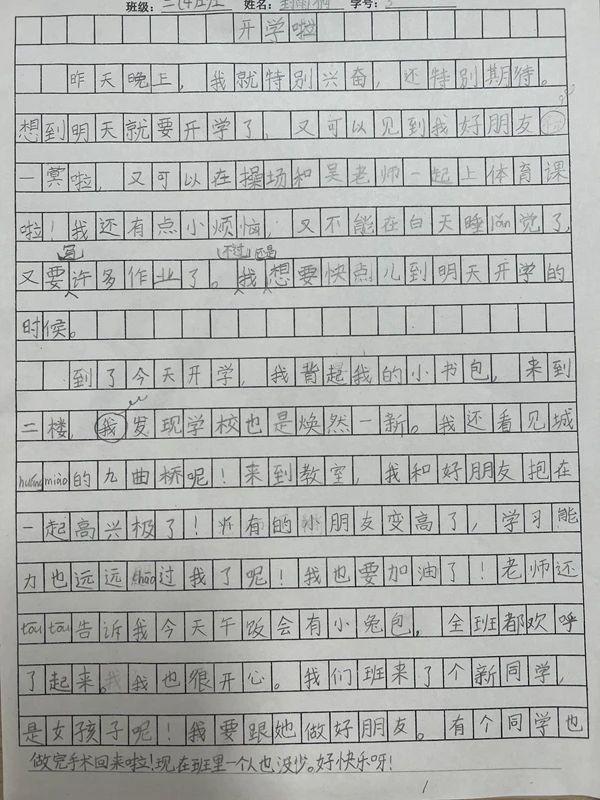 班级： 姓名： 学号：3
开学啦
昨天晚上，我就特别兴奋，还特别期待。
想到明天就要开学了，又可以见到我好朋友
一宾啦，又可以在操场和吴老师一起上体育课
啦！我还有点小烦恼，又不能在白天睡lǎn觉了，
写 不过 还是
又要许多作业了。我想要快点儿到明天开学的
时候。
到了今天开学，我背起我的小书包，来到
二楼，我发现学校也是焕然一新。我还看见城
huáng miào的九曲桥呢！来到教室，我和好朋友抱在
一起高兴极了！所有的小朋友变高了，学习能
力也远远chāo过我了呢！我也要加油了！老师还
tōu tōu告诉我今天午饭会有小兔包，全班都欢呼
了起来。我也很开心。我们班来了个新同学，
是女孩子呢！我要跟她做好朋友。有个同学也
做完手术回来啦！现在班里一个人也没少。好快乐呀！
1